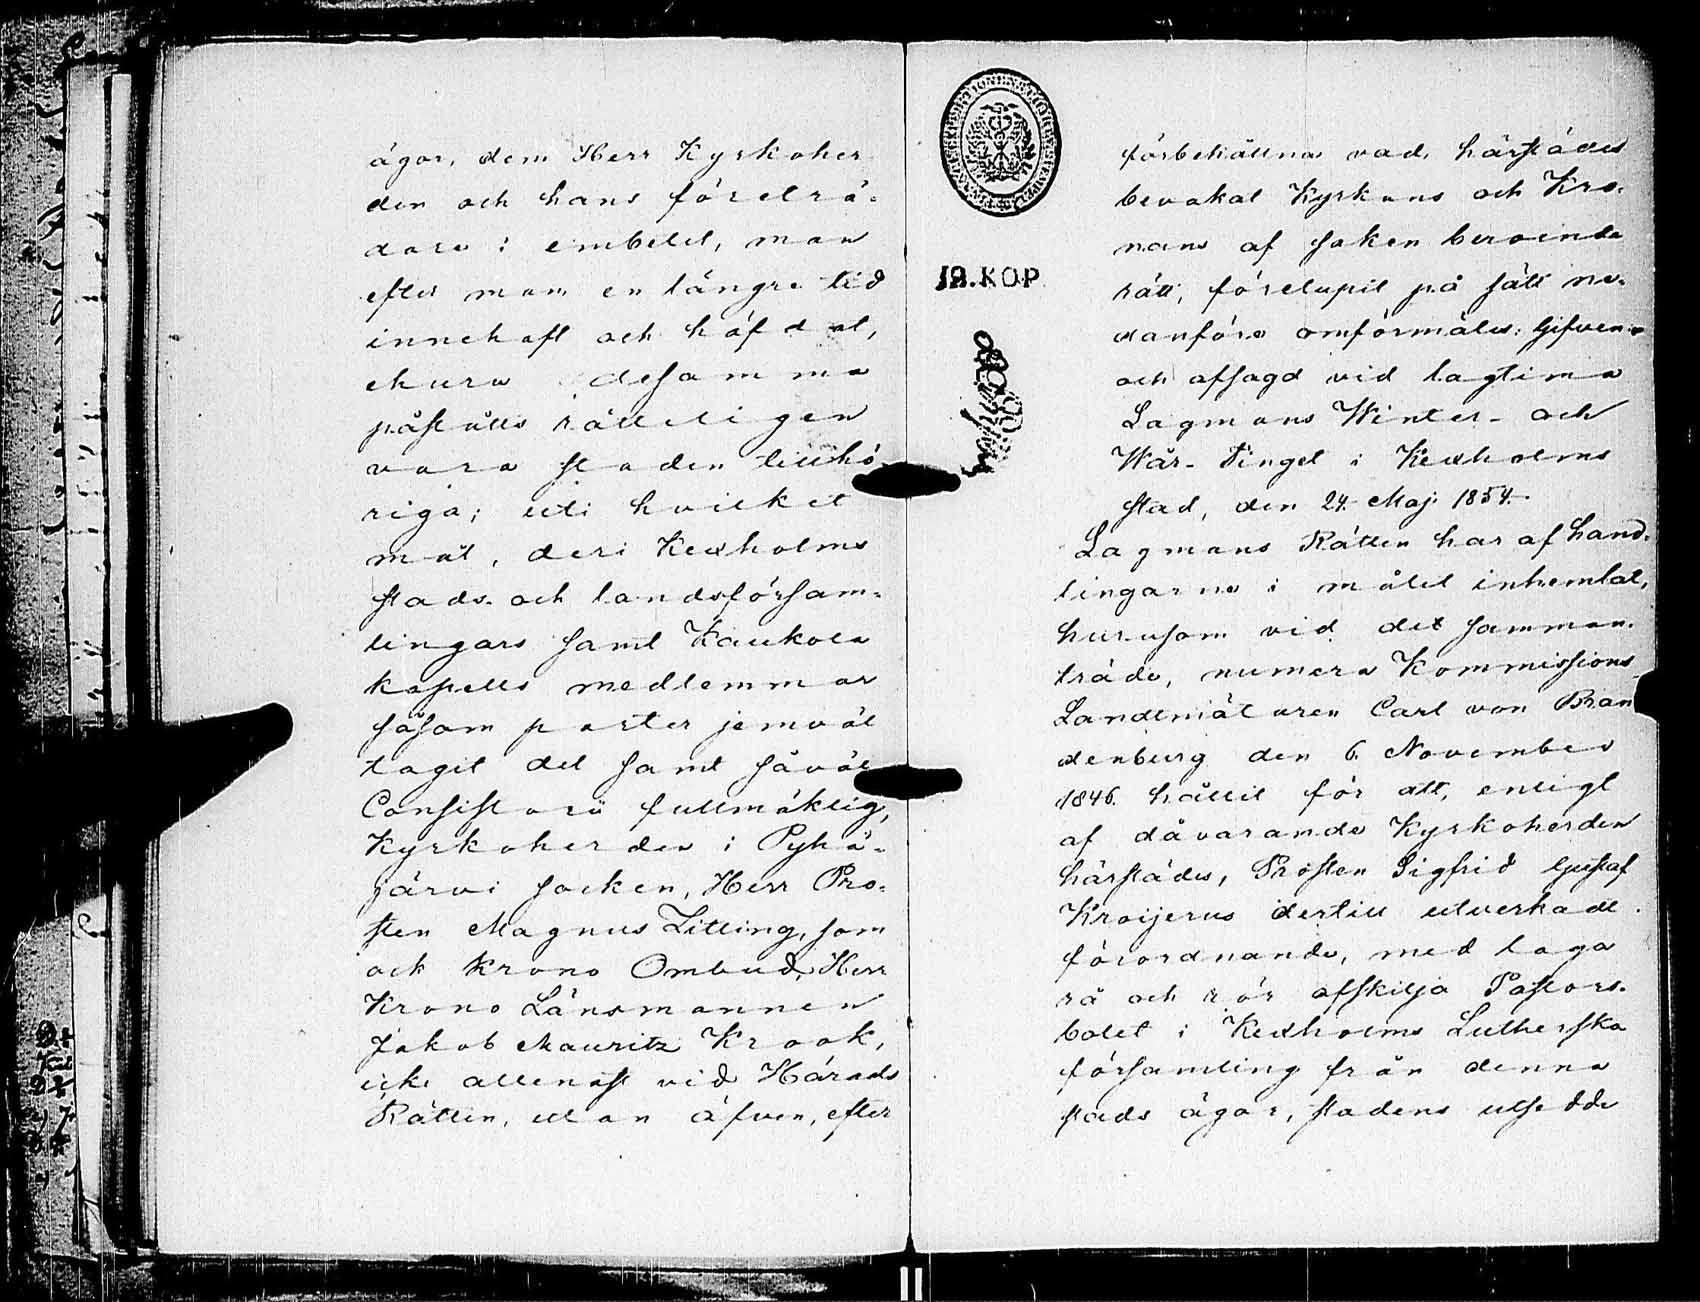 ägor, dem Herr Kyrkoher
den och hans företrä-
dare i embetet, man
efter man en längre tid
innehaft och häfdat,
ehuru desamma
påstålls rätteligen
vara staden tillhö
riga; uti hvilket
mål, deri Kexholms
stads- och landsförsam-
lingars samt Kaukola
kapells medlemmar
såsom parter jemväl
tagit del samt såväl
Consistorii fullmäktig,
Kyrkoherden i Pyhä-
järvi socken, Herr Pro-
sten Magnus Zitting, som
ock Krono Ombud, Herr
Krono Länsmannen
Jakob Mauritz Krook,
icke allenast vid Härads
Rätten, utan äfven, efter
12.KOP.
förbehållna vad, härstädes
bevakat Kyrkans och Kro-
nans af saken beroende
rätt, förelupit på sätt ne-
danföre omförmäles: Gifven
och afsagd vid lagtima
Lagmans Winter- och
Wår-Tinget i Kexholms
stad, den 24. Maj 1854.
Lagmans Rätten har af hand-
lingarna i målet inhemtat,
hurusom vid det samman-
träde, numera Kommissions
Landtmätaren Carl von Bran
denburg den 6. November
1846. hållit för att, enligt
af dåvarande Kyrkoherden
härstädes, Prosten Sigfrid Gustaf
Kroijerus dertill utverkadt
förordnande, med laga
rå och rör afskilja Pastors-
bolet i Kexholms Lutherska
församling från denna
stads ägor, stadens utsedde